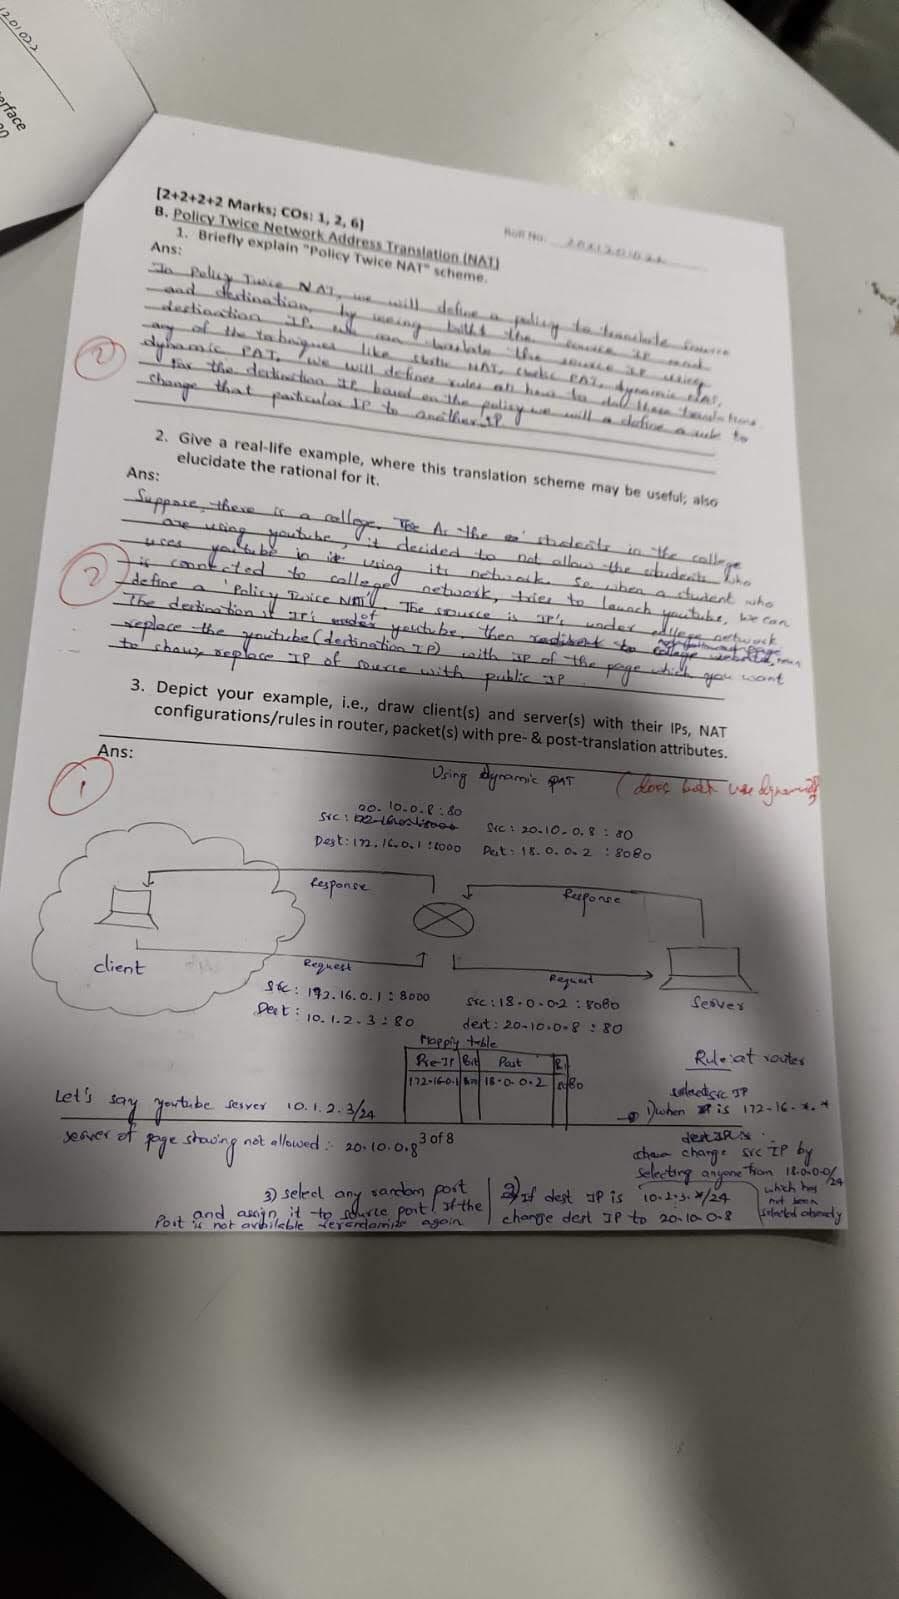 [2+2+2+2 Marks; COs: 1, 2, 6]
Roll No.
B. Policy Twice Network Address Translation (NAT)
1. Briefly explain "Policy Twice NAT" scheme.
Ans:
In Policy Twice NAT, we will define a policy to translate source
and destination, by using both the source IP and
destination IP. we can translate the source IP using
any of the techniques like static NAT, static PAT, dynamic NAT,
dynamic PAT. we will defines rules on how to do these translations
for the destination IP based on the policy we will a define a rule to
change that particular IP to another IP
2
2. Give a real-life example, where this translation scheme may be useful; also
elucidate the rational for it.
Ans:
Suppose, there is a college. As the students in the college
are using youtube, it decided to not allow the students who
uses youtube in it using its network. So when a student who
is connected to college network, tries to launch youtube, we can
define a 'Policy Twice NAT'. The source is IP's under college network
The destination is IP's of youtube, then redirect to not allowed page
replace the youtube (destination IP) with IP of the page which you want
to show, replace IP of source with public IP.
2
3. Depict your example, i.e., draw client(s) and server(s) with their IPs, NAT
configurations/rules in router, packet(s) with pre- & post-translation attributes.
Ans:
1
Using dynamic PAT
(does both use dynamic
20.10.0.8:80
Src:
Dest: 172.16.0.1:8000
Src: 20.10.0.8:80
Dest: 18.0.0.2:8080
Response
Response
client
Request
Request
Server
Src: 192.16.0.1:8000
Dest: 10.1.2.3:80
src: 18.0.0.2:8080
dest: 20.10.0.8:80
Mapping table
Pre-IP Post
172.16.0.1 18.0.0.2
Rule: at router
Let's say youtube server 10.1.2.3/24
1) when IP is 172.16.*.*
server of page showing not allowed: 20.10.0.8
3 of 8
change src IP by
selecting anyone from 18.0.0.0/24
which has
not been
selected already
2) If dest IP is 10.2.3.*/24
change dest IP to 20.10.0.8
3) select any random port
and assign it to source port. If the
Port is not available rerandomise again